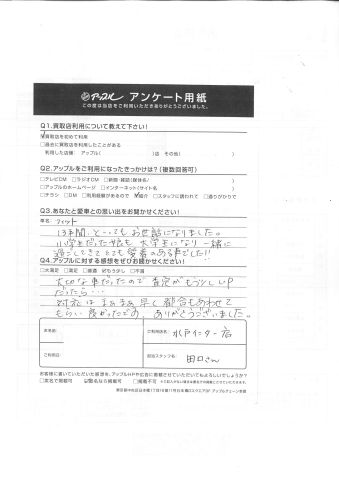 アップル アンケート用紙
この度は当店をご利用いただきありがとうございました。
Q1.買取店利用について教えて下さい!
買取店を初めて利用
□過去に買取店を利用したことがある
利用した店舗:アップル( )店 その他( )
Q2.アップルをご利用になったきっかけは?(複数回答可)
□テレビCM □ラジオCM □新聞・雑誌(媒体名/ )
□アップルのホームページ □インターネット(サイト名 )
□チラシ □DM □利用経験があるので 紹介 □スタッフに誘われて □通りがかりで
Q3.あなたと愛車との思い出をお聞かせください!
車種名: フィット
13年間、とってもお世話になりました。
小学生だった娘も大学生になり一緒に
過ごしてきたとても愛着のある車でした!!
Q4.アップルに対する感想をぜひお聞かせください!
□大満足 □満足 □普通 もう少し □不満
大切な車だったので査定がもう少しUP
だったら…
対応はまあまあ早く都合もあわせて
もらい良かったです。ありがとうございました。
お名前:
ご利用店名: 水戸インター店
ご利用日:
担当スタッフ名: 田口さん
お客様に書いていただいた感想を、アップルHPや広告に掲載させていただいてもよろしいでしょうか?
□実名で掲載可 匿名なら掲載可 □掲載不可